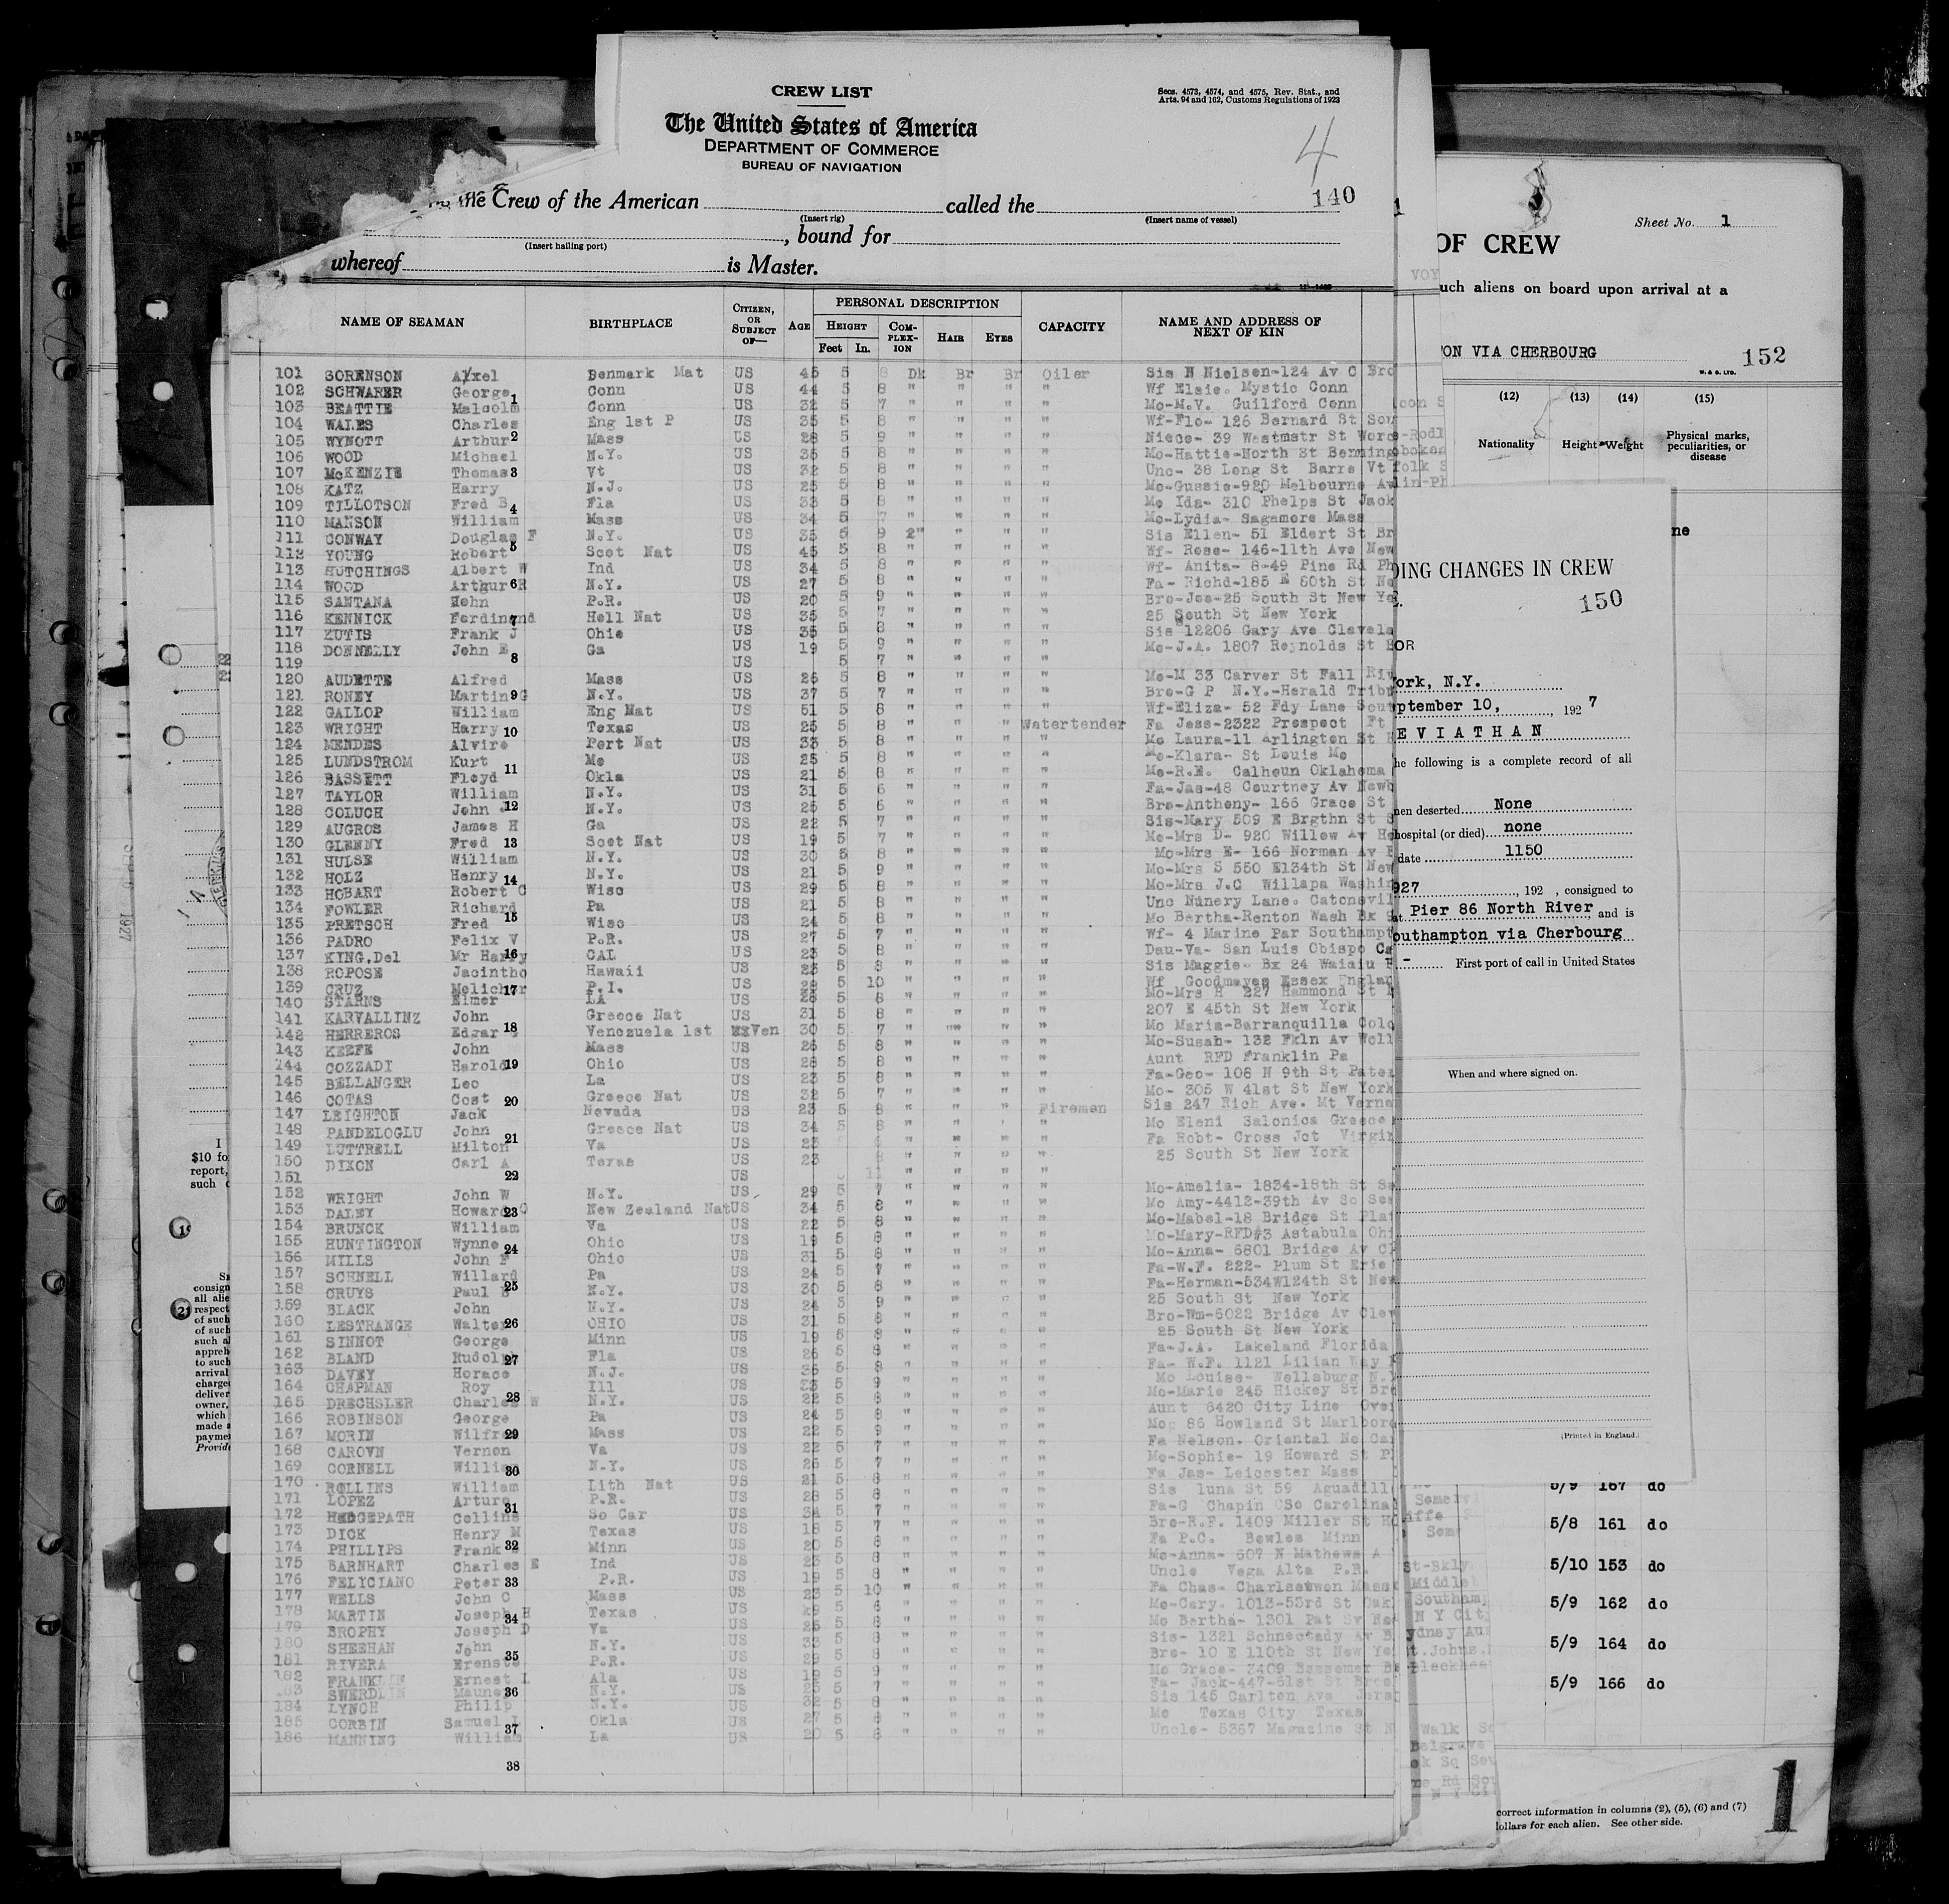 CREW LIST
Secs. 4573, 4574, and 4575, Rev. Stat., and
Arts. 94 and 162, Customs Regulations of 1923
The United States of America
DEPARTMENT OF COMMERCE
BUREAU OF NAVIGATION
4
140
the Crew of the American called the
(Insert rig) (Insert name of vessel)
, bound for
(Insert hailing port)
whereof is Master.
NAME OF SEAMAN BIRTHPLACE CITIZEN, OR SUBJECT OF— AGE PERSONAL DESCRIPTION CAPACITY NAME AND ADDRESS OF NEXT OF KIN
HEIGHT Feet In. COMPLEXION HAIR EYES
101 SORENSON Axel Denmark Nat US 45 5 8 Dk Br Br Oiler Sis N Nielsen-124 Av C Bro
102 SCHWARER George US 44 5 8 " " " " Wf Elsie. Mystic Conn
103 BEATTIE Malcolm Conn US 32 5 7 " " " " Mo-M.V. Guilford Conn
104 WALES Charles Eng 1st P US 35 5 8 " " " " Wf-Flo- 126 Bernard St Sou
105 WYNOTT Arthur Mass US 28 5 9 " " " " Niece- 39 Westmstr St Worc
106 WOOD Michael N.Y. US 35 5 8 " " " " Mo-Hattie-North St Benning
107 McKENZIE Thomas Vt US 32 5 8 " " " " Unc- 38 Long St Barre Vt
108 KATZ Harry N.J. US 25 5 8 " " " " Mo-Gussie-920 Melbourne Av
109 TILLOTSON Fred B Fla US 33 5 8 " " " " Mo Ida- 310 Phelps St Jack
110 MANSON William Mass US 34 5 7 " " " " Mo-Lydia- Sagamore Mass
111 CONWAY Douglas F N.Y. US 35 5 9 2" " " " Sis Ellen- 51 Eldert St Br
112 YOUNG Robert Scot Nat US 45 5 8 " " " " Wf- Rose- 146-11th Ave New
113 HUTCHINGS Albert W Ind US 34 5 8 " " " " Wf- Anita- 8-49 Pine Rd Ph
114 WOOD Arthur R N.Y. US 27 5 8 " " " " Fa- Richd-185 E 80th St Ne
115 SANTANA John P.R. US 20 5 9 " " " " Bro-Jos-25 South St New Yo
116 KENNICK Ferdinand Holl Nat US 35 5 7 " " " " 25 South St New York
117 ZUTIS Frank J Ohio US 35 5 8 " " " " Sis 12206 Gary Ave Clevela
118 DONNELLY John E Ga US 19 5 9 " " " " Mo-J.A. 1807 Reynolds St
119 US 5 7 " " " "
120 AUDETTE Alfred Mass US 26 5 8 " " " " Mo-M 33 Carver St Fall Riv
121 RONEY Martin G N.Y. US 37 5 7 " " " " Bro-G P N.Y.-Herald Tribu
122 GALLOP William Eng Nat US 51 5 8 " " " " Wf-Eliza- 52 Fdy Lane Sout
123 WRIGHT Harry Texas US 25 5 8 " " " Watertender Fa Jess-2322 Prospect Ft
124 MENDES Alvire Port Nat US 33 5 8 " " " " Mo Laura-11 Arlington St
125 LUNDSTROM Kurt Mo US 25 5 8 " " " " Mo-Klara- St Louis Mo
126 BASSETT Floyd Okla US 21 5 8 " " " " Mo-R.E. Calhoun Oklahoma
127 TAYLOR William N.Y. US 31 5 6 " " " " Fa-Jas-48 Courtney Av Newb
128 COLUCH John J N.Y. US 25 5 6 " " " " Bro-Anthony- 166 Grace St
129 AUGROS James H Ga US 22 5 7 " " " " Sis-Mary 509 E Brgthn St S
130 GLENNY Fred Scot Nat US 19 5 7 " " " " Mo-Mrs D- 920 Willow Av Ho
131 HULSE William N.Y. US 30 5 8 " " " " Mo-Mrs E- 166 Norman Av
132 HOLZ Henry N.Y. US 21 5 9 " " " " Mo-Mrs S 550 E134th St New
133 HOBART Robert C Wisc US 29 5 8 " " " " Mo-Mrs J.C Willapa Washin
134 FOWLER Richard Pa US 21 5 8 " " " " Unc Nunery Lane. Catonsvil
135 PRETSCH Fred Wisc US 24 5 8 " " " " Mo Bertha-Renton Wash Bx
136 PADRO Felix V P.R. US 27 5 7 " " " " Wf- 4 Marine Par Southampt
137 KING,Del Mr Harry CAL US 23 5 8 " " " " Dau-Va- San Luis Obispo Ca
138 ROPOSE Jacintho Hawaii US 23 5 8 " " " " Sis Maggie- Bx 24 Waialu
139 CRUZ Melichor P.I. US 5 10 " " " " Wf Goodmayes Essex Englan
140 STARNS Elmer LA US 26 5 8 " " " " Mo-Mrs H 227 Hammond St
141 KARVALLINZ John Greece Nat US 31 5 8 " " " " 207 E 45th St New York
142 HERREROS Edgar Venezuela 1st Ven 30 5 7 " " " " Mo Maria-Barranquilla Colo
143 KEEFE John Mass US 26 5 8 " " " " Mo-Susan- 132 Fkln Av Woll
144 COZZADI Harold Ohio US 28 5 8 " " " " Aunt RFD Franklin Pa
145 BELLANGER Leo La US 23 5 8 " " " " Fa-Geo- 108 N 9th St Pater
146 COTAS Cost Greece Nat US 32 5 7 " " " " Mo- 305 W 41st St New York
147 LEIGHTON Jack Nevada US 23 5 8 " " " Fireman Sis 247 Rich Ave. Mt Verno
148 PANDELOGLU John Greece Nat US 34 5 8 " " " Mo Eleni Salonica Greece
149 LUTTRELL Milton Va US 23 " " " " Fa Robt- Cross Jct Virgin
150 DIXON Carl A Texas US 23 " " " " 25 South St New York
151 US 11 " " " "
152 WRIGHT John W N.Y. US 29 5 7 " " " " Mo-Amelia- 1834-18th St
153 DALEY Howard New Zealand Nat US 34 5 8 " " " " Mo Amy-4412-39th Av So
154 BRUNCK William Va US 22 5 8 " " " " Mo-Mabel-18 Bridge St Plai
155 HUNTINGTON Wynne Ohio US 19 5 8 " " " " Mo-Mary-RFD#3 Astabula Ohi
156 MILLS John F Ohio US 31 5 8 " " " " Mo-Anna- 6801 Bridge Av Cl
157 SCHNELL Willard Pa US 24 5 7 " " " " Fa-W.F. 222- Plum St Erie
158 CRUYS Paul N.Y. US 30 5 8 " " " " Fa-Herman-534W124th St New
159 BLACK John N.Y. US 24 5 9 " " " " 25 South St New York
160 LESTRANGE Walter OHIO US 31 5 8 " " " " Bro-Wm-6022 Bridge Av Clev
161 SINNOT George Minn US 19 5 8 " " " " 25 South St New York
162 BLAND Rudolph Fla US 26 5 8 " " " " Fa-J.A. Lakeland Florida
163 DAVEY Horace N.J. US 5 8 " " " " Fa- W.F. 1121 Lilian Way
164 CHAPMAN Roy Ill US 5 9 " " " " Mo Louise- Wellsburg N.Y
165 DRECHSLER Charles W N.Y. US 22 5 8 " " " " Mo-Marie 245 Hickey St Bro
166 ROBINSON George Pa US 24 5 8 " " " " Aunt 6420 City Line Over
167 MORIN Wilfred Mass US 22 5 9 " " " " 86 Howland St Marlboro
168 CAROVN Vernon Va US 22 5 7 " " " " Fa Nelson- Oriental No Car
169 CORNELL William N.Y. US 26 5 7 " " " " Mo-Sophie- 19 Howard St
170 ROLLINS William Lith Nat US 21 5 8 " " " " Fa Jas- Leicester Mass
171 LOPEZ Arture P.R. US 28 5 8 " " " " Sis luna St 59 Aguadill
172 HEDGEPATH Collins So Car US 5 7 " " " " Fa-G Chapin So Carolina
173 DICK Henry M Texas US 18 5 7 " " " " Bro-R.F. 1409 Miller St Ho
174 PHILLIPS Frank Minn US 20 5 8 " " " " Fa P.C. Bewles Minn
175 BARNHART Charles E Ind US 23 5 8 " " " " Mo-Anna- 607 N Mathews A
176 FELYCIANO Peter P.R. US 19 5 8 " " " " Uncle Vega Alta P.R.
177 WELLS John C Mass US 23 5 10 " " " " Fa Chas- Charlsetwon Mass
178 MARTIN Joseph H Texas US 5 6 " " " " Mo-Cary. 1013-53rd St Oak
179 BROPHY Joseph D Va US 25 5 8 " " " " Mo Bertha- 1301 Pat
180 SHEEHAN John N.Y. US 33 5 8 " " " " Sis- 1321 Schnectady Av B
181 RIVERA Ernest P.R. US 29 5 8 " " " " Bro- 10 E 110th St New Yo
182 FRANKLIN Ernest L Ala US 19 5 9 " " " " Mo Grace- 3409 Bessemer
183 SWERDLIN N.Y. US 5 7 " " " " Fa- Jack-447-51st St
184 LYNCH Philip N.Y. US 32 5 8 " " " " Sis 145 Carlton Ave
185 CORBIN Samuel L Okla US 27 5 8 " " " " Mo Texas City Texas
186 MANNING William La US 20 5 8 " " " " Uncle- 5367 Magazine St N
1
2
3
4
5
6
7
8
9
10
11
12
13
14
15
16
17
18
19
20
21
22
23
24
25
26
27
28
29
30
31
32
33
34
35
36
37
38
Sheet No. 1
OF CREW
such aliens on board upon arrival at a
ON VIA CHERBOURG
152
W. & S. LTD.
(12) (13) (14) (15)
Nationality Height Weight Physical marks, peculiarities, or disease
ne
DING CHANGES IN CREW
150
OR
ork, N.Y.
ptember 10, , 1927
EVIATHAN
he following is a complete record of all
men deserted None
hospital (or died) none
date 1150
927 , 192 , consigned to
at Pier 86 North River and is
outhampton via Cherbourg
- First port of call in United States
When and where signed on.
(Printed in England.)
5/9 167 do
5/8 161 do
5/10 153 do
5/9 162 do
5/9 164 do
5/9 166 do
correct information in columns (2), (5), (6) and (7)
dollars for each alien. See other side.
1
1927
I
$10 fo
report,
such
consign
all alie
respect
of such
of such
such al
appreh
to such
arrival
charge
deliver
owner,
which
made a
payme
Provid